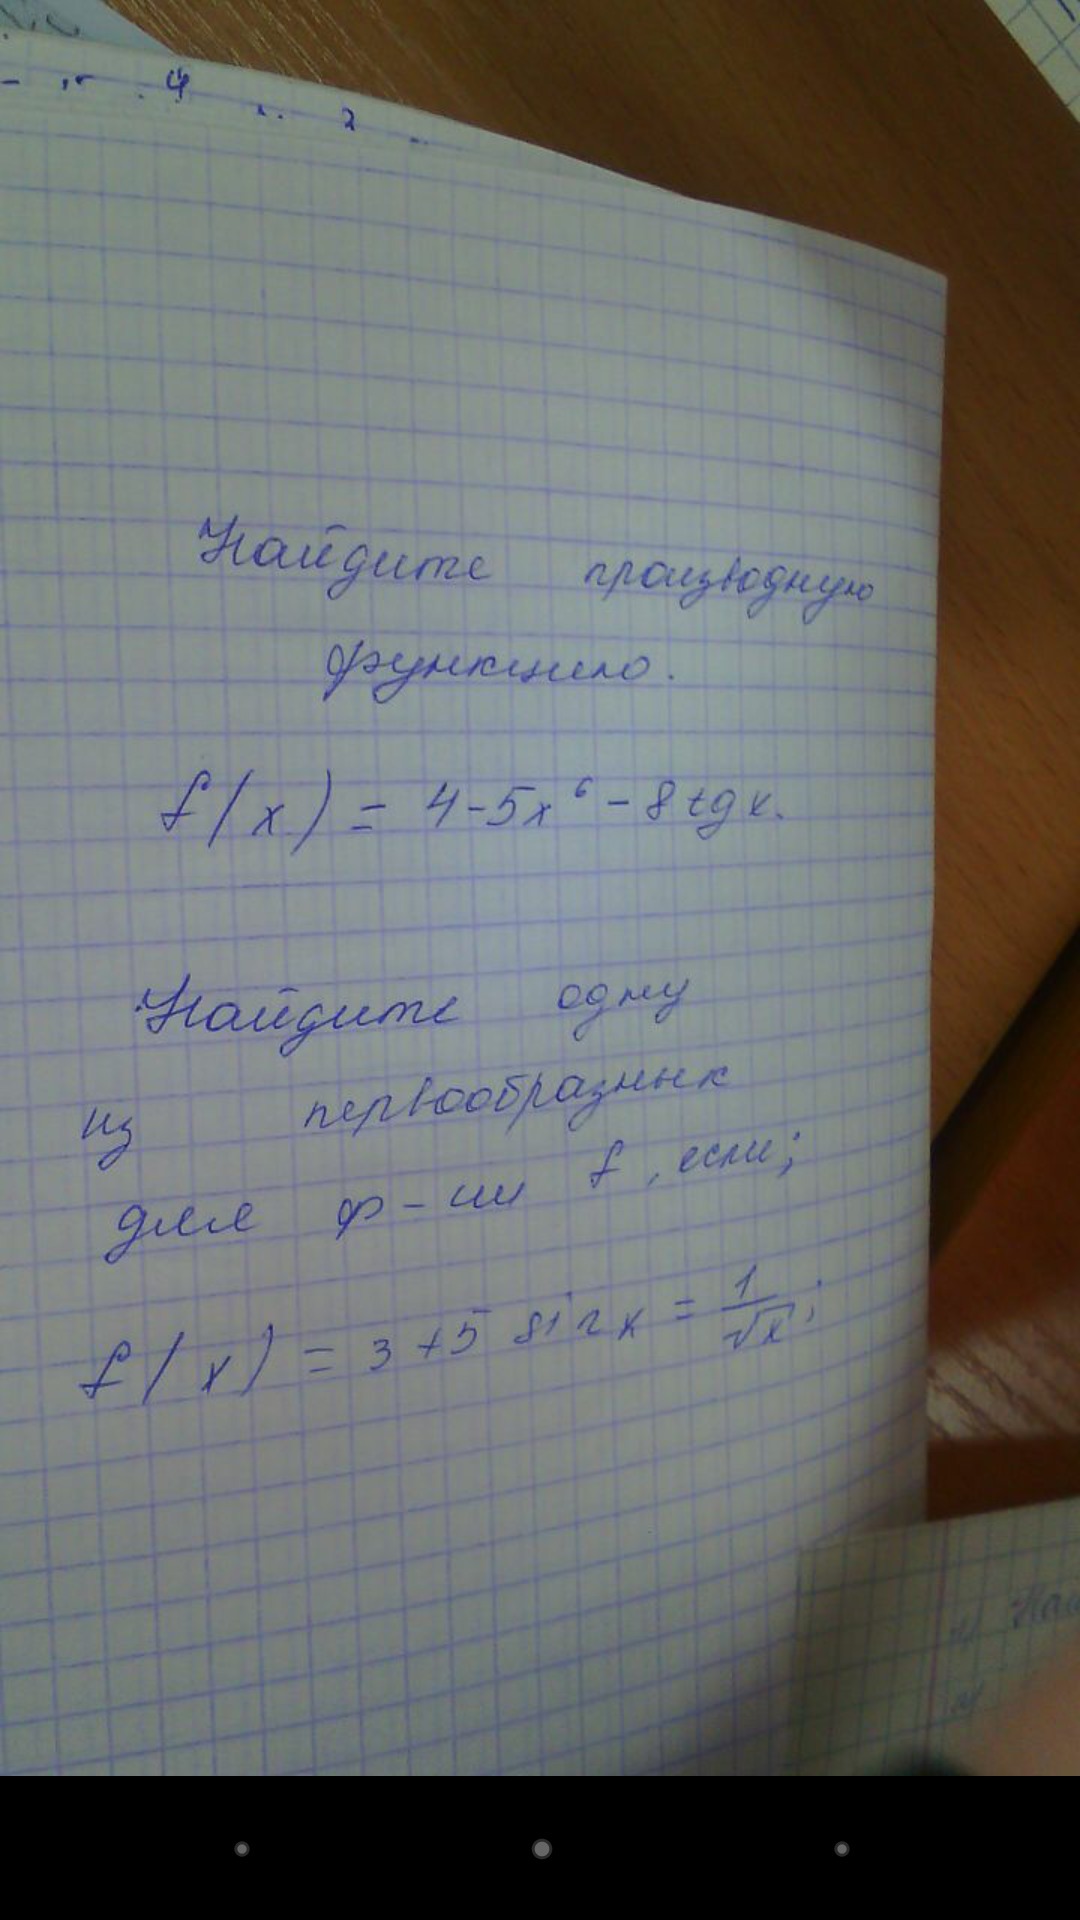 4
2
Найдите производную
функцию.
f(x) = 4-5x⁶-8tgx.
Найдите одну
из первообразных
для ф-ии f, если;
f(x) = 3+5 sin x = 1/√x;